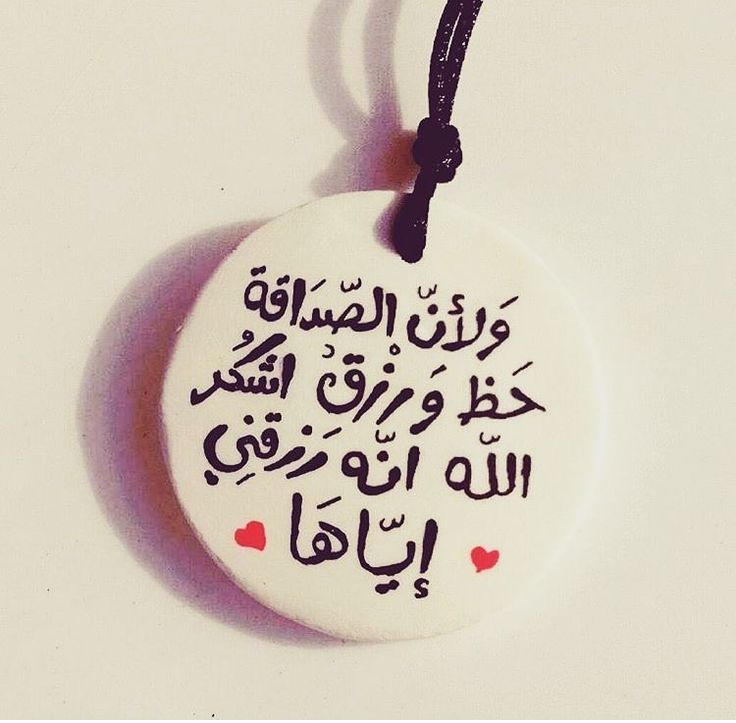 وَلأنّ الصّدَاقة
حَظ وَرزْقْ اشكُر
اللّه انّه رَزقنِي
إيّاهَا